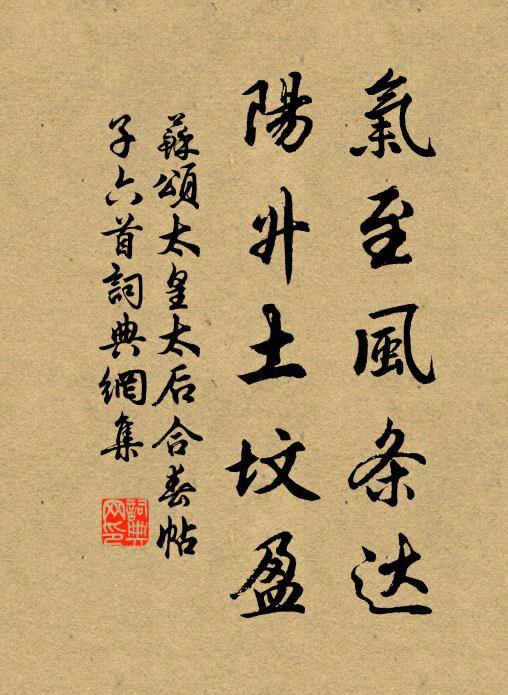 氣至風条达
陽升土坟盈
蘇頌太皇太后合春帖
子六首詞典網集
詞典网印